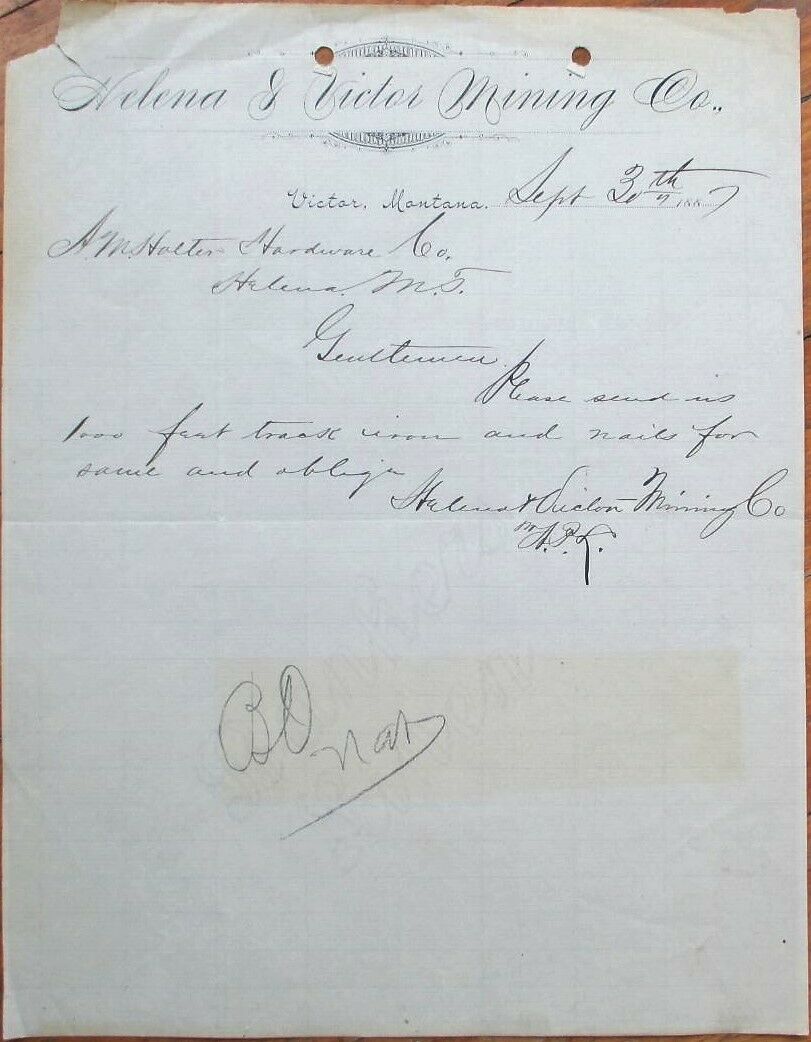 Helena & Victor Mining Co.,
Victor, Montana, Sept 30th 1887
A. M. Holter Hardware Co.
Helena. M.T.
Gentlemen
Please send us
1000 feet track iron and nails for
same and oblige
Helena & Victor Mining Co